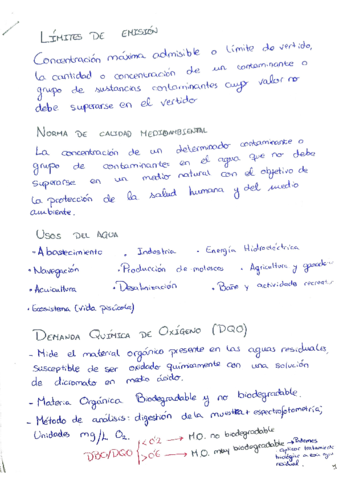 LÍMITES DE EMISIÓN
Concentración máxima admisible o límite de vertido,
la cantidad o concentración de un contaminante o
grupo de sustancias contaminantes cuyo valor no
debe superarse en el vertido
NORMA DE CALIDAD MEDIOAMBIENTAL
La concentración de un determinado contaminante o
grupo de contaminantes en el agua que no debe
superarse en un medio natural con el objetivo de
la protección de la salud humana y del medio
ambiente.
USOS DEL AGUA
- Abastecimiento . Industria . Energía Hidroeléctrica
- Navegación . Producción de Agricultura y
- Acuicultura . Desalinización . Baño y actividades
- Ecosistema (vida piscícola)
DEMANDA QUÍMICA DE OXÍGENO (DQO)
- Mide el material orgánico presente en las aguas residuales,
susceptible de ser oxidado químicamente con una solución
de dicromato en medio ácido.
- Materia Orgánica Biodegradable y no biodegradable.
- Método de análisis: digestión de la muestra + espectrofotometría;
Unidades mg/L O2.
DBO/DQO <0'2 → M.O. no biodegradable
>0'6 → M.O. muy biodegradable → Podemos
aplicar tratamiento
biológico a esa agua
residual.